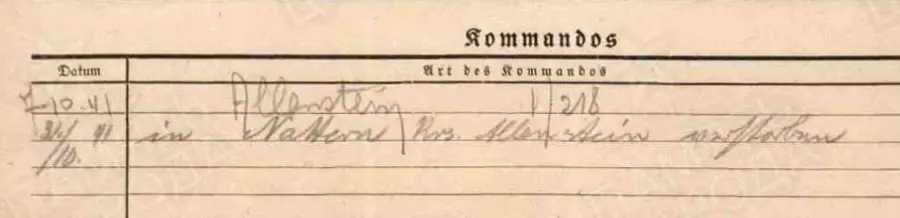 Kommandos
Datum Art des Kommandos
10.41 Allenstein 1/218
/41 in Nattern, Krs. Allenstein verstorben
/10.